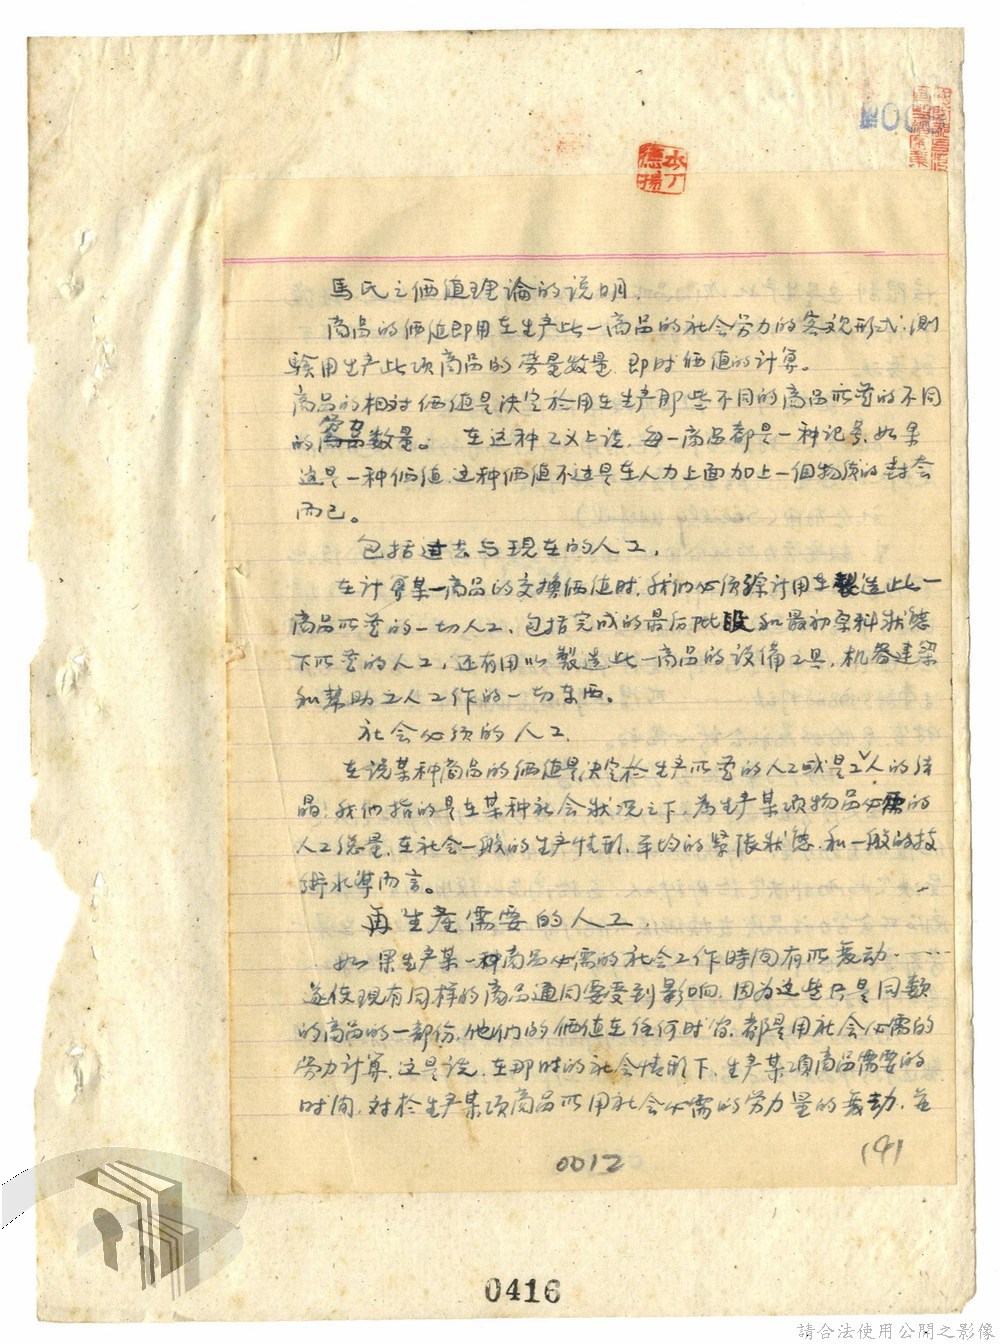 馬氏之価值理論的说明.
商品的価值即用在生产此一商品的社会劳力的客观形式.测
验用生产此项商品的劳量数量.即时価值的计算。
商品的相对価值是决定於用在生产那些不同的商品所需的不同
的劳力数量。 在这种工义上说.每一商品都是一种记号.如果
这是一种価值.这种価值不过是在人力上面加上一個物质的封套
而已。
包括过去与現在的人工.
在计算某一商品的交換価值时.我们必须综计用在製造此一
商品所需的一切人工.包括完成的最后阶段和最初原料狀態
下所需的人工,还有用以製造此一商品的设備工具,机器建築
和幫助工人工作的一切东西。
社会必须的人工.
在说某种商品的価值是决定於生产所需的人工或是工人的结
晶.我们指的是在某种社会狀况之下.為生产某项物品必需的
人工総量.在社会一般的生产情形.平均的緊張狀態.和一般的技
術水準而言。
再生產需要的人工.
如果生产某一种商品必需的社会工作時间有所变动.
遂使現有同样的商品通同要受到影响.因为这些只是同数
的商品的一部份.他们的価值在任何时间.都是用社会必需的
劳力计算.这是说.在那时的社会情形下.生产某項商品需要的
时间.对於生产某项商品所用社会必需的劳力量的变动.並
0012
(4)
0416
岑丁
德揚
請合法使用公開之影像